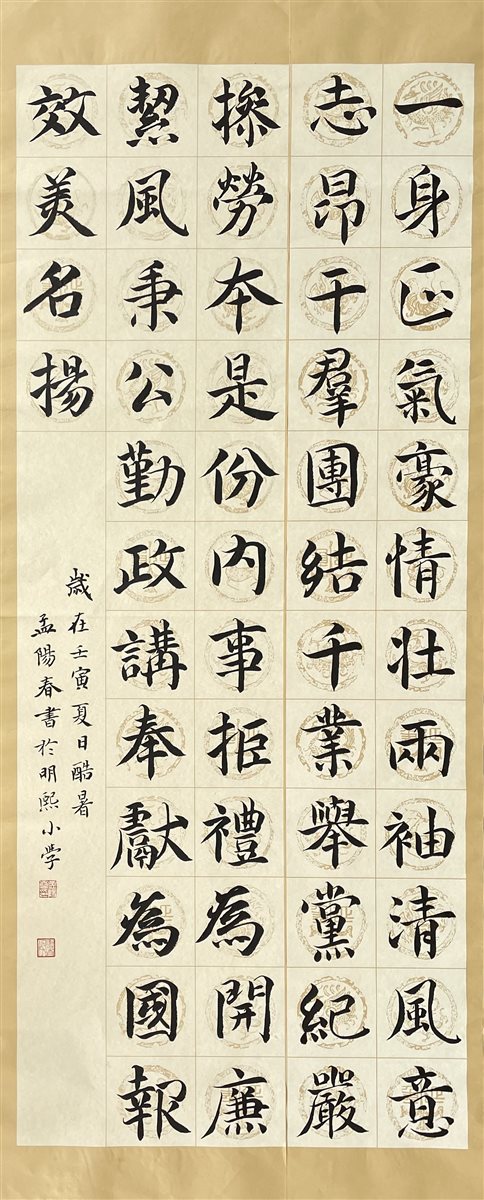 一身正氣豪情壯兩袖清風意
志昂干羣團結千業舉黨紀嚴
操勞本是份内事拒禮為開廉
絜風秉公勤政講奉獻為國報
效美名揚
歲在壬寅夏日酷暑
孟陽春書於明熙小学